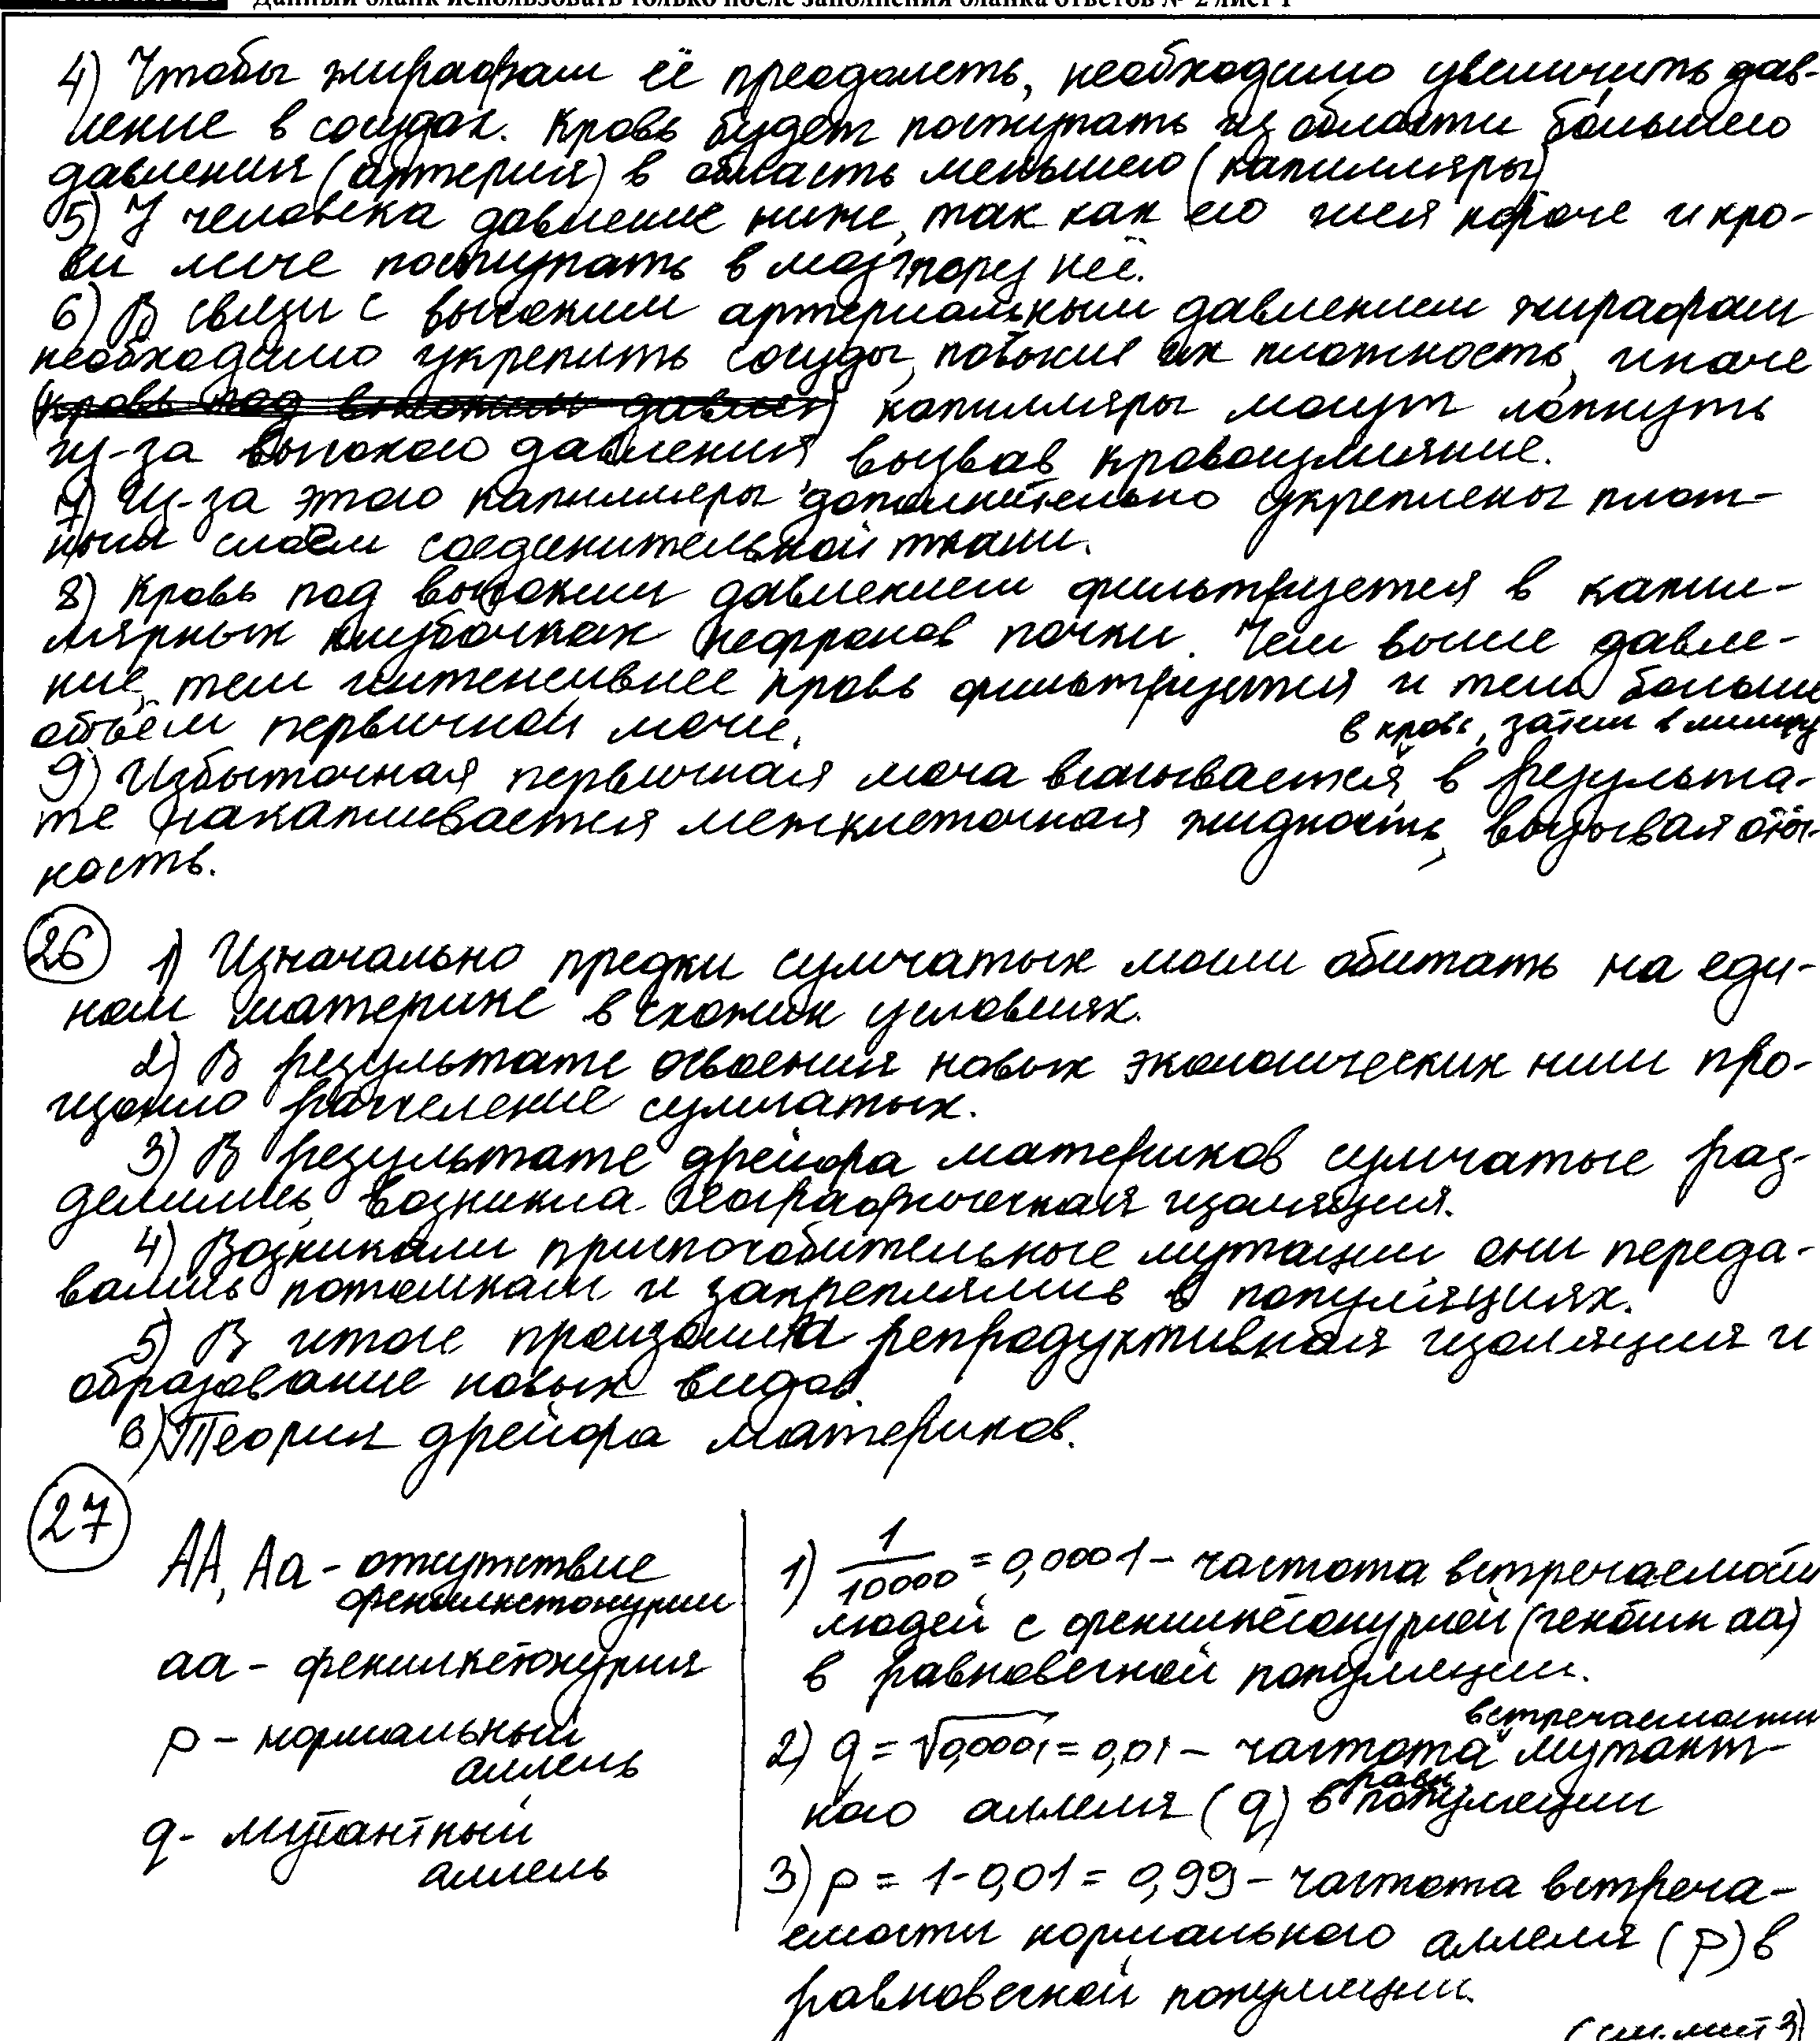 Данный бланк использовать только после заполнения бланка ответов № 2 лист 1
4) Чтобы жирафам её преодолеть, необходимо увеличить дав-
ление в сосудах. Кровь будет поступать из области большего
давления (артерия) в область меньшего (капилляры)
5) У человека давление ниже, так как его шея короче и кро-
ви легче поступать в мозг через неё.
6) В связи с высоким артериальным давлением жирафам
необходимо укрепить сосуды, повысив их плотность, иначе
(кровь под высоким давлен) капилляры могут лопнуть
из-за высокого давления, вызвав кровоизлияние.
7) Из-за этого капилляры дополнительно укреплены плот-
ным слоем соединительной ткани.
8) Кровь под высоким давлением фильтруется в капил-
лярных клубочках нефронов почки. Чем выше давле-
ние, тем интенсивнее кровь фильтруется и тем больше
объём первичной мочи.
в кровь, затем в лимфу
9) Избыточная первичная моча всасывается, в результа-
те накапливается межклеточная жидкость, вызывая отёч-
ность.
26 1) Изначально предки сумчатых могли обитать на еди-
ном материке в схожих условиях.
2) В результате освоения новых экологических ниш про-
изошло расселение сумчатых.
3) В результате дрейфа материков сумчатые раз-
делились, возникла географическая изоляция.
4) Возникали приспособительные мутации они переда-
вались потомкам и закреплялись в популяциях.
5) В итоге произошла репродуктивная изоляция и
образование новых видов.
6) Теория дрейфа материков.
27
АА, Аа - отсутствие
фенилкетонурии
аа - фенилкетонурия
p - нормальный
аллель
q - мутантный
аллель
1) 1/10000 = 0,0001 - частота встречаемости
людей с фенилкетонурией (генотип аа)
в равновесной популяции.
встречаемости
2) q = √0,0001 = 0,01 - частота мутант-
равн
ного аллеля (q) в популяции
3) p = 1-0,01 = 0,99 - частота встреча-
емости нормального аллеля (p) в
равновесной популяции.
(см. лист 3)